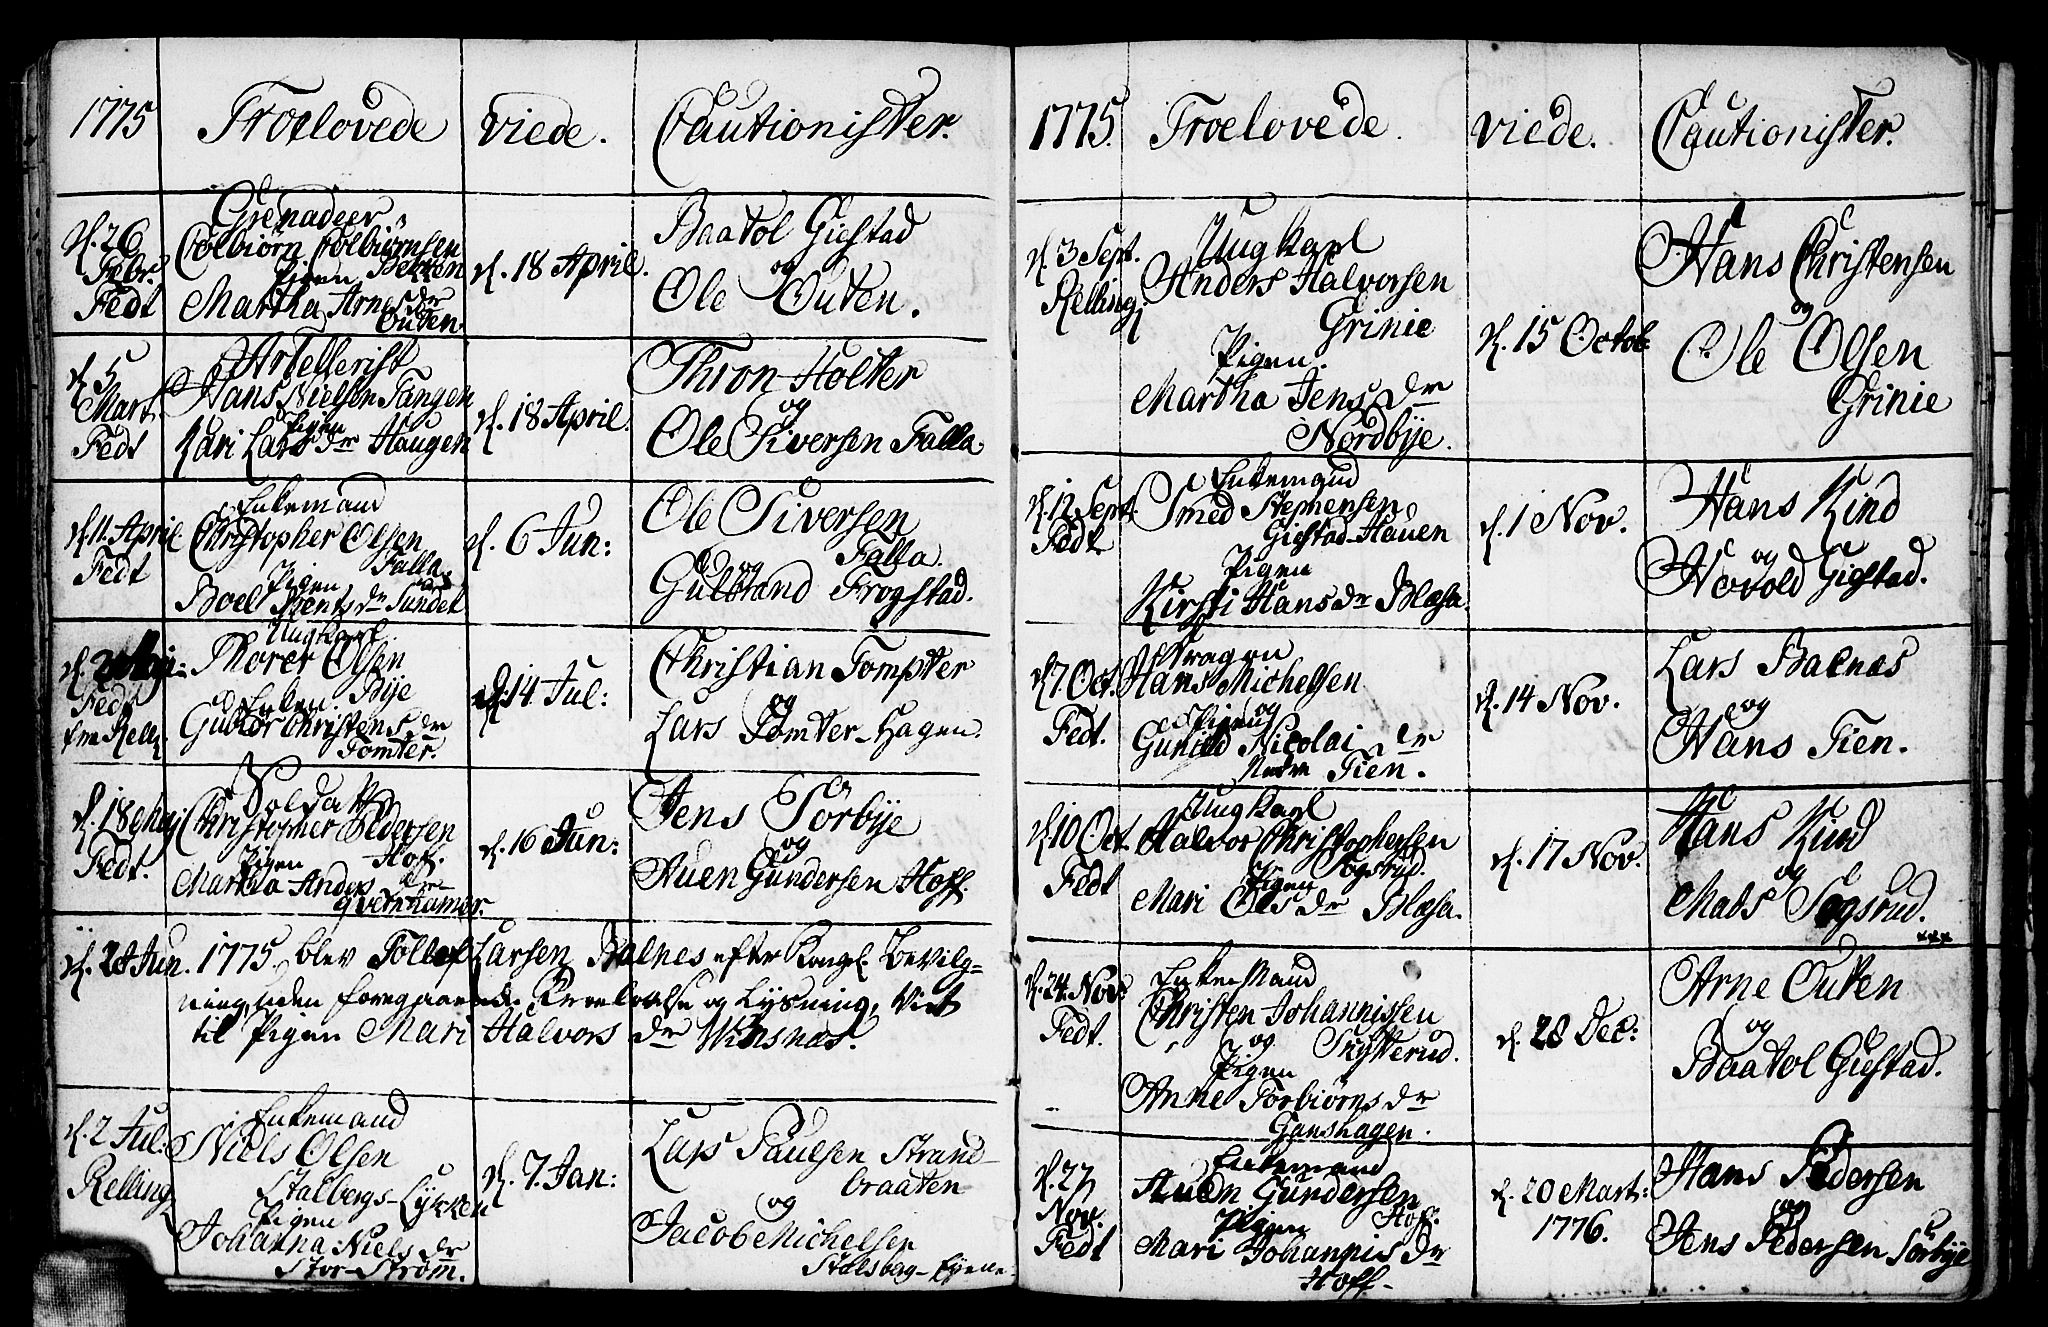 1775 Troelovede viede. Cautionister.
d. 26 Febr. Fedt
Grenadeer
Colbiørn Colbiørnsen
Pigen Bekken
Martha Arnes dr
Outen.
d. 18 April.
Baatol Giestad
og
Ole Outen.
d. 5 Mart. Fedt
Artellerist
Hans Nielsen Tangen
Pigen
Kari Lars dr Haugen
d. 18 April.
Thron Holter
og
Ole Siversen Falla
d. 11. April Fedt
Enkemand
Christopher Olsen
Falla
Pigen
Boel Bents dr Sundet
d. 6 Jun:
Ole Siversen
Falla.
og
Gulbrand Frogstad.
Fedt
Ungkarl
Thorer Olsen
Bye
Enken
Gubiør Christens dr
Tomter.
d. 14. Jul:
Christian Tompter
og
Lars Tomter-Hagen.
d. 18 Maj Fedt.
Soldat
Christopher Pedersen
Hoff.
Pigen
Martha Anders dr
Qvernhamer.
d. 16 Jun:
Jens Sörbye
og
Auen Gundersen Hoff.
d. 28 Jun. 1775. blev Tollef Larsen Balnes efter Kongl. Bevilg-
ning, uden foregaaende Troelovelse og Lysning, Viet
til Pigen Mari Halvors dr Winsnas.
d. 2 Jul: Relling
Enkemand
Niels Olsen
Stalbergs-Lykken
Pigen
Johanna Niels dr
Stor-Strøm.
d. 7. Jan:
Lars Paulsen Strand-
braaten
og
Jacob Michelsen
Stalsbag-Eyene
1775. Troelovede. viede. Cautionister.
d. 3 Sept. Relling
Ungkarl
Anders Halvorsen
Grinie
Pigen.
Martha Jens dr
Nordbye.
d. 15 Octob:
Hans Christensen
og
Ole Olsen
Grinie
d. 12 Sept. Fedt
Enkemand
Smed Stephensen
Giestad-Hauen
Pigen
Kirsti Hans dr Blæsa
d. 1 Nov.
Hans Kind
og
Hovold Giestad.
d. 7. Oct. Fedt.
Dragon
Hans Michelsen
og
Pigen
Gunild Nicolai dr
Nedre Tien.
d. 14 Nov.
Lars Balnes
og
Hans Tien.
d. 10 Oct. Fedt
Ungkarl
Halvor Christophersen
Togsrud.
Pigen
Mari Ols dr Blæsa.
d. 17 Nov.
Hans Kind
og
Mads Togsrud.
d. 24. Nov Fedt.
Enkemand
Christen Johannissen
og Skytterud.
Pigen
Anne Torbiørns dr
Ganshagen.
d. 28 Dec:
Arne Outen
og
Baatol Giestad.
d. 27 Nov. Fedt
Enkemand
Auen Gundersen
Pigen Hoff.
Mari Johannis dr
Hoff-
d. 20 Mart: 1776.
Hans Pedersen
og
Jens Pedersen Sörbye